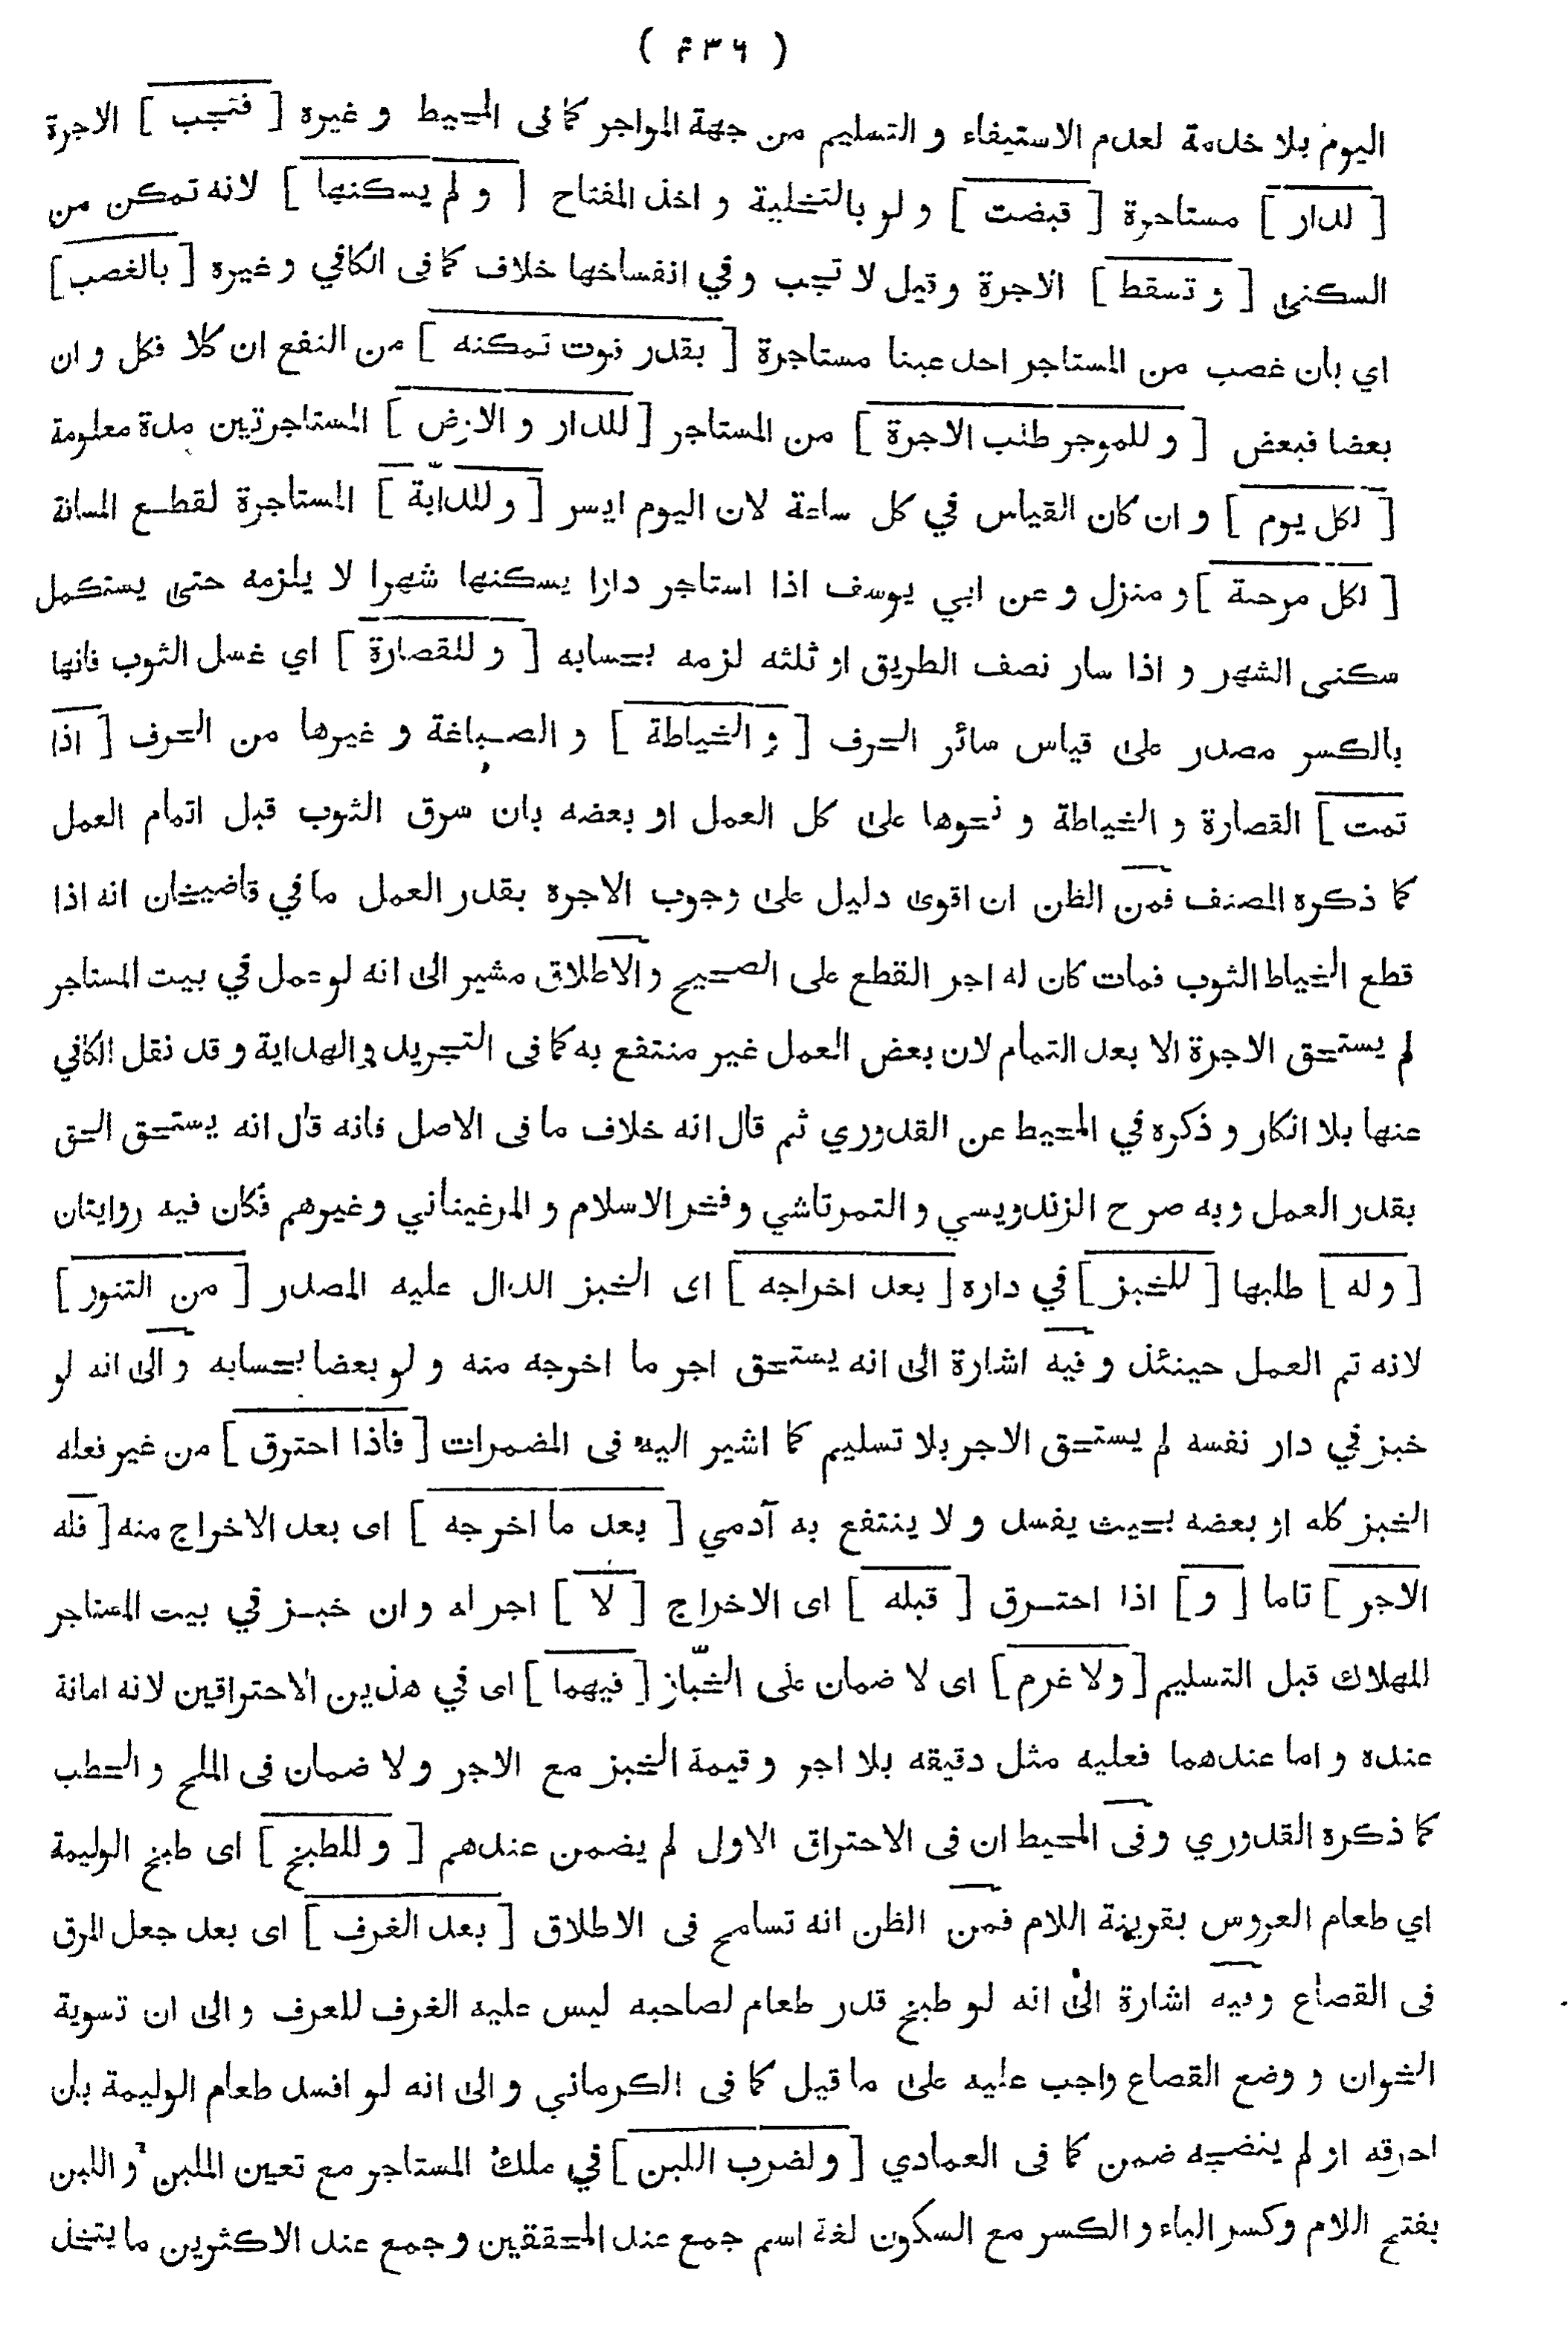 ( ۴۳۶ )
اليوم بلا خدمة لعدم الاستيفاء و التسليم من جهة المواجر كما فى المحيط و غيره [ فتجب ] الاجرة
[ لدار ] مستاجرة [ قبضت ] و لو بالتخلية و اخذ المفتاح [ و لم يسكنها ] لانه تمكن من
السكنى [ و تسقط ] الاجرة و قيل لا تجب و في انفساخها خلاف كما فى الكافي و غيره [ بالغصب ]
اي بان غصب من المستاجر احد عينا مستاجرة [ بقدر فوت تمكنه ] من النفع ان كلا فكل و ان
بعضا فبعض [ و للموجر طلب الاجرة ] من المستاجر [ للدار و الارض ] المستاجرتين مدة معلومة
[ لكل يوم ] و ان كان القياس في كل ساعة لان اليوم ايسر [ و للدابّة ] المستاجرة لقطع المسافة
[ لكل مرحلة ] و منزل و عن ابي يوسف اذا استاجر دارا يسكنها شهرا لا يلزمه حتى يستكمل
سكنى الشهر و اذا سار نصف الطريق او ثلثه لزمه بحسابه [ و للقصارة ] اي غسل الثوب فانها
بالكسر مصدر على قياس سائر الحرف [ و الخياطة ] و الصباغة و غيرها من الحرف [ اذا
تمت ] القصارة و الخياطة و نحوها على كل العمل او بعضه بان سرق الثوب قبل اتمام العمل
كما ذكره المصنف فمن الظن ان اقوى دليل على وجوب الاجرة بقدر العمل ما في قاضيخان انه اذا
قطع الخياط الثوب فمات كان له اجر القطع على الصحيح و الاطلاق مشير الى انه لو عمل في بيت المستاجر
لم يستحق الاجرة الا بعد التمام لان بعض العمل غير منتفع به كما فى التجريد و الهداية و قد نقل الكافي
عنها بلا انكار و ذكره في المحيط عن القدوري ثم قال انه خلاف ما فى الاصل فانه قال انه يستحق الحق
بقدر العمل و به صرح الزندويسي و التمرتاشي و فخر الاسلام و المرغيناني و غيرهم فكان فيه روايتان
[ و له ] طلبها [ للخبز ] في داره [ بعد اخراجه ] اى الخبز الدال عليه المصدر [ من التنور ]
لانه تم العمل حينئذ و فيه اشارة الى انه يستحق اجر ما اخرجه منه و لو بعضا بحسابه و الى انه لو
خبز في دار نفسه لم يستحق الاجر بلا تسليم كما اشير اليه فى المضمرات [ فاذا احترق ] من غير فعله
الخبز كله او بعضه بحيث يفسد و لا ينتفع به آدمي [ بعد ما اخرجه ] اى بعد الاخراج منه [ فله
الاجر ] تاما [ و ] اذا احترق [ قبله ] اى الاخراج [ لا ] اجر له و ان خبز في بيت المستاجر
للهلاك قبل التسليم [ و لا غرم ] اى لا ضمان على الخبّاز [ فيهما ] اى في هذين الاحتراقين لانه امانة
عنده و اما عندهما فعليه مثل دقيقه بلا اجر و قيمة الخبز مع الاجر و لا ضمان فى الملح و الحطب
كما ذكره القدوري و فى المحيط ان فى الاحتراق الاول لم يضمن عندهم [ و للطبخ ] اى طبخ الوليمة
اي طعام العروس بقرينة اللام فمن الظن انه تسامح فى الاطلاق [ بعد الغرف ] اى بعد جعل المرق
فى القصاع و فيه اشارة الى انه لو طبخ قدر طعام لصاحبه ليس عليه الغرف للعرف و الى ان تسوية
الخوان و وضع القصاع واجب عليه على ما قيل كما فى الكرماني و الى انه لو افسد طعام الوليمة بان
احرقه او لم ينضجه ضمن كما فى العمادي [ و لضرب اللبن ] في ملك المستاجر مع تعين الملبن و اللبن
بفتح اللام و كسر الباء و الكسر مع السكون لغة اسم جمع عند المحققين و جمع عند الاكثرين ما يتخذ